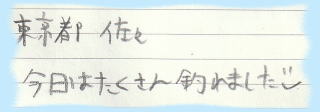 東京都 佐々
今日はたくさん釣れました